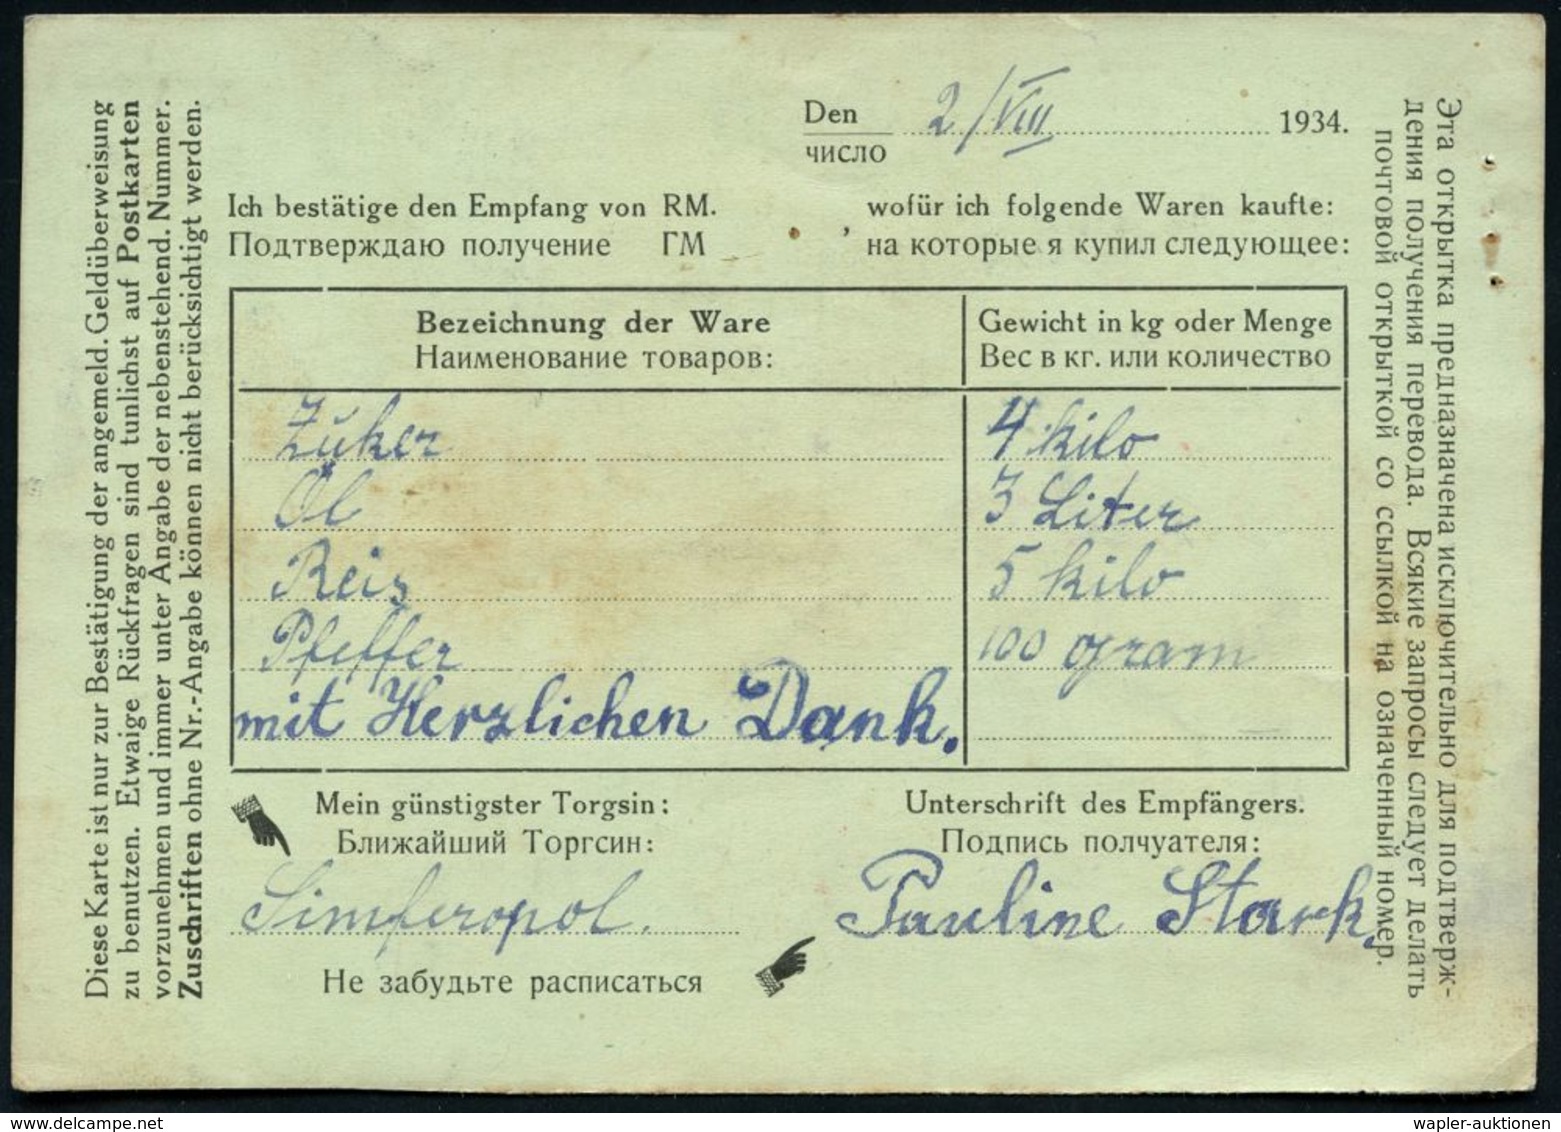 Diese Karte ist nur zur Bestätigung der angemeld. Geldüberweisung
zu benutzen. Etwaige Rückfragen sind tunlichst auf Postkarten
vorzunehmen und immer unter Angabe der nebenstehend. Nummer.
Zuschriften ohne Nr.-Angabe können nicht berücksichtigt werden.
Den 2/VIII 1934.
число
Ich bestätige den Empfang von RM. , wofür ich folgende Waren kaufte:
Подтверждаю получение ГМ на которые я купил следующее:
Bezeichnung der Ware Gewicht in kg oder Menge
Наименование товаров: Вес в кг. или количество
Zuker 4 kilo
Öl 3 Liter
Reis 5 kilo
Pfeffer 100 gram
mit Herzlichen Dank.
Mein günstigster Torgsin: Unterschrift des Empfängers.
Ближайший Торгсин: Подпись полчуателя:
Simferopol. Pauline Stark.
Не забудьте расписаться
Эта открытка предназначена исключительно для подтверж-
дения получения перевода. Всякие запросы следует делать
почтовой открыткой со ссылкой на означенный номер.
wapler-auktionen